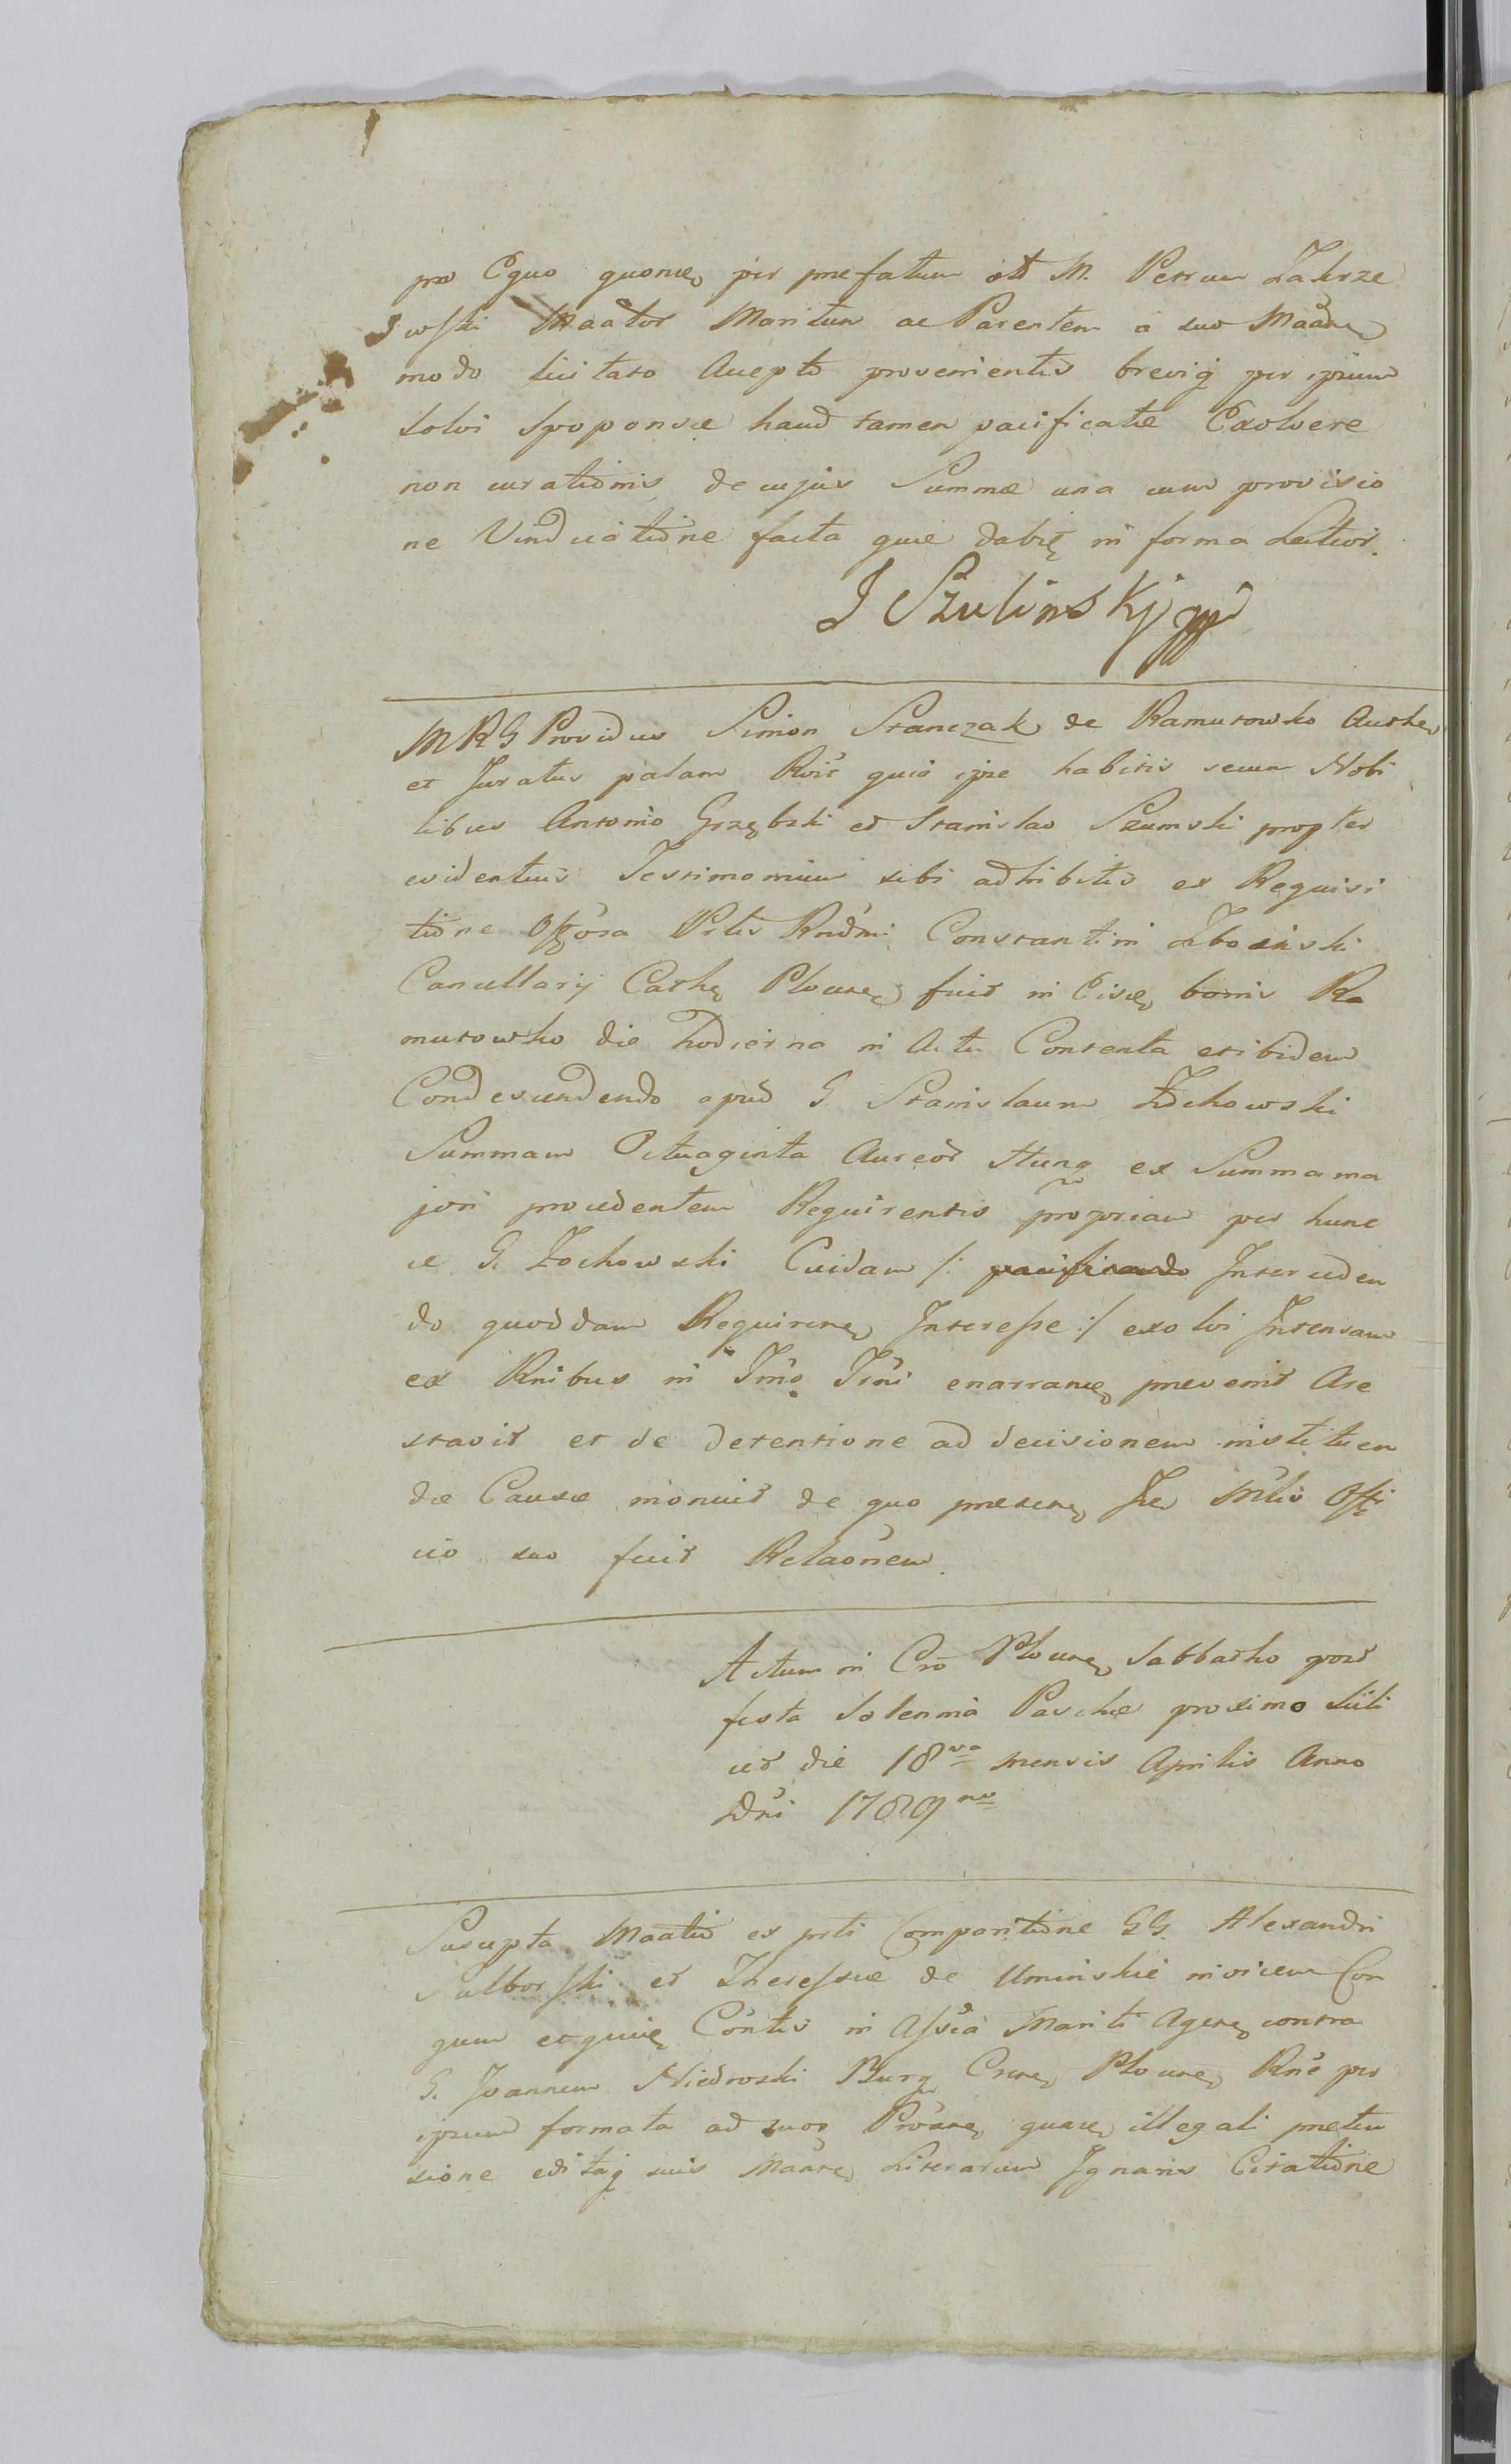 pro Equo quonaę per prefatum olt M. Petrum Zakrze
wski Maator Maritum ac Parentem a suo Maadę
modo licitato Accepto provenientis brevią per ipsum
solvi Spoponsæ haud tamen pacificatæ Exolvere
non curationis de cujus Summæ una cum provisio
ne Vindicatione facta quie dabię in forma Lation.
J Szulinskj
MRG Providus Simon Stanczak de Ramutowko Authę
et Juratus palam Rvit quia ipse habitis secum Nobi
libus Antonio Grzębski et Stanislao Szumski propter
evidentius Testimonium sibi adhibitis ex Requisi
tione Officiosa Prlis Rndmi Constantini Zboinski
Cancellarij Cathę Plocenę fuit in Civię bonis Ra
mutowko die hodierna in Actu Contenta et ibidem
Condescendendo apud G. Stanislaum Żochowski
Summam Octuaginta Aureor Hung ex Summa ma
jori procedentem Requirentis propriam per hunc
ce G. Żochowski Cuidam /: Interceden
do quoddam Requirenę Interesse :/ exolvi Intensam
ex Rnibus in Tmo Trni enarranę prevenit Are
stavit et de detentione ad decisionem instituen
dæ Causæ monuit de quo presenę Ję Mlis Offi
cio suo fuit Relaonem.
Actum in Cro Plocenę Sabbatho post
festa Solennia Paschæ proximo Scili
cet die 18va mensis Aprilis Anno
Dni 1789no
Suscepta Maatio ex prti Comparitione GG. Alexandri
Sulborski et Theressiæ de Uminskie invicem Con
gum et quiię Contis in Assia Mariti Agenę contra
G. Joannem Niedroski Burg Crenę Plocenę Rne per
ipsum formata ad suos Proanę quaię illegali preten
sione editaq suis Maanę Literarum Ignaris Citatione